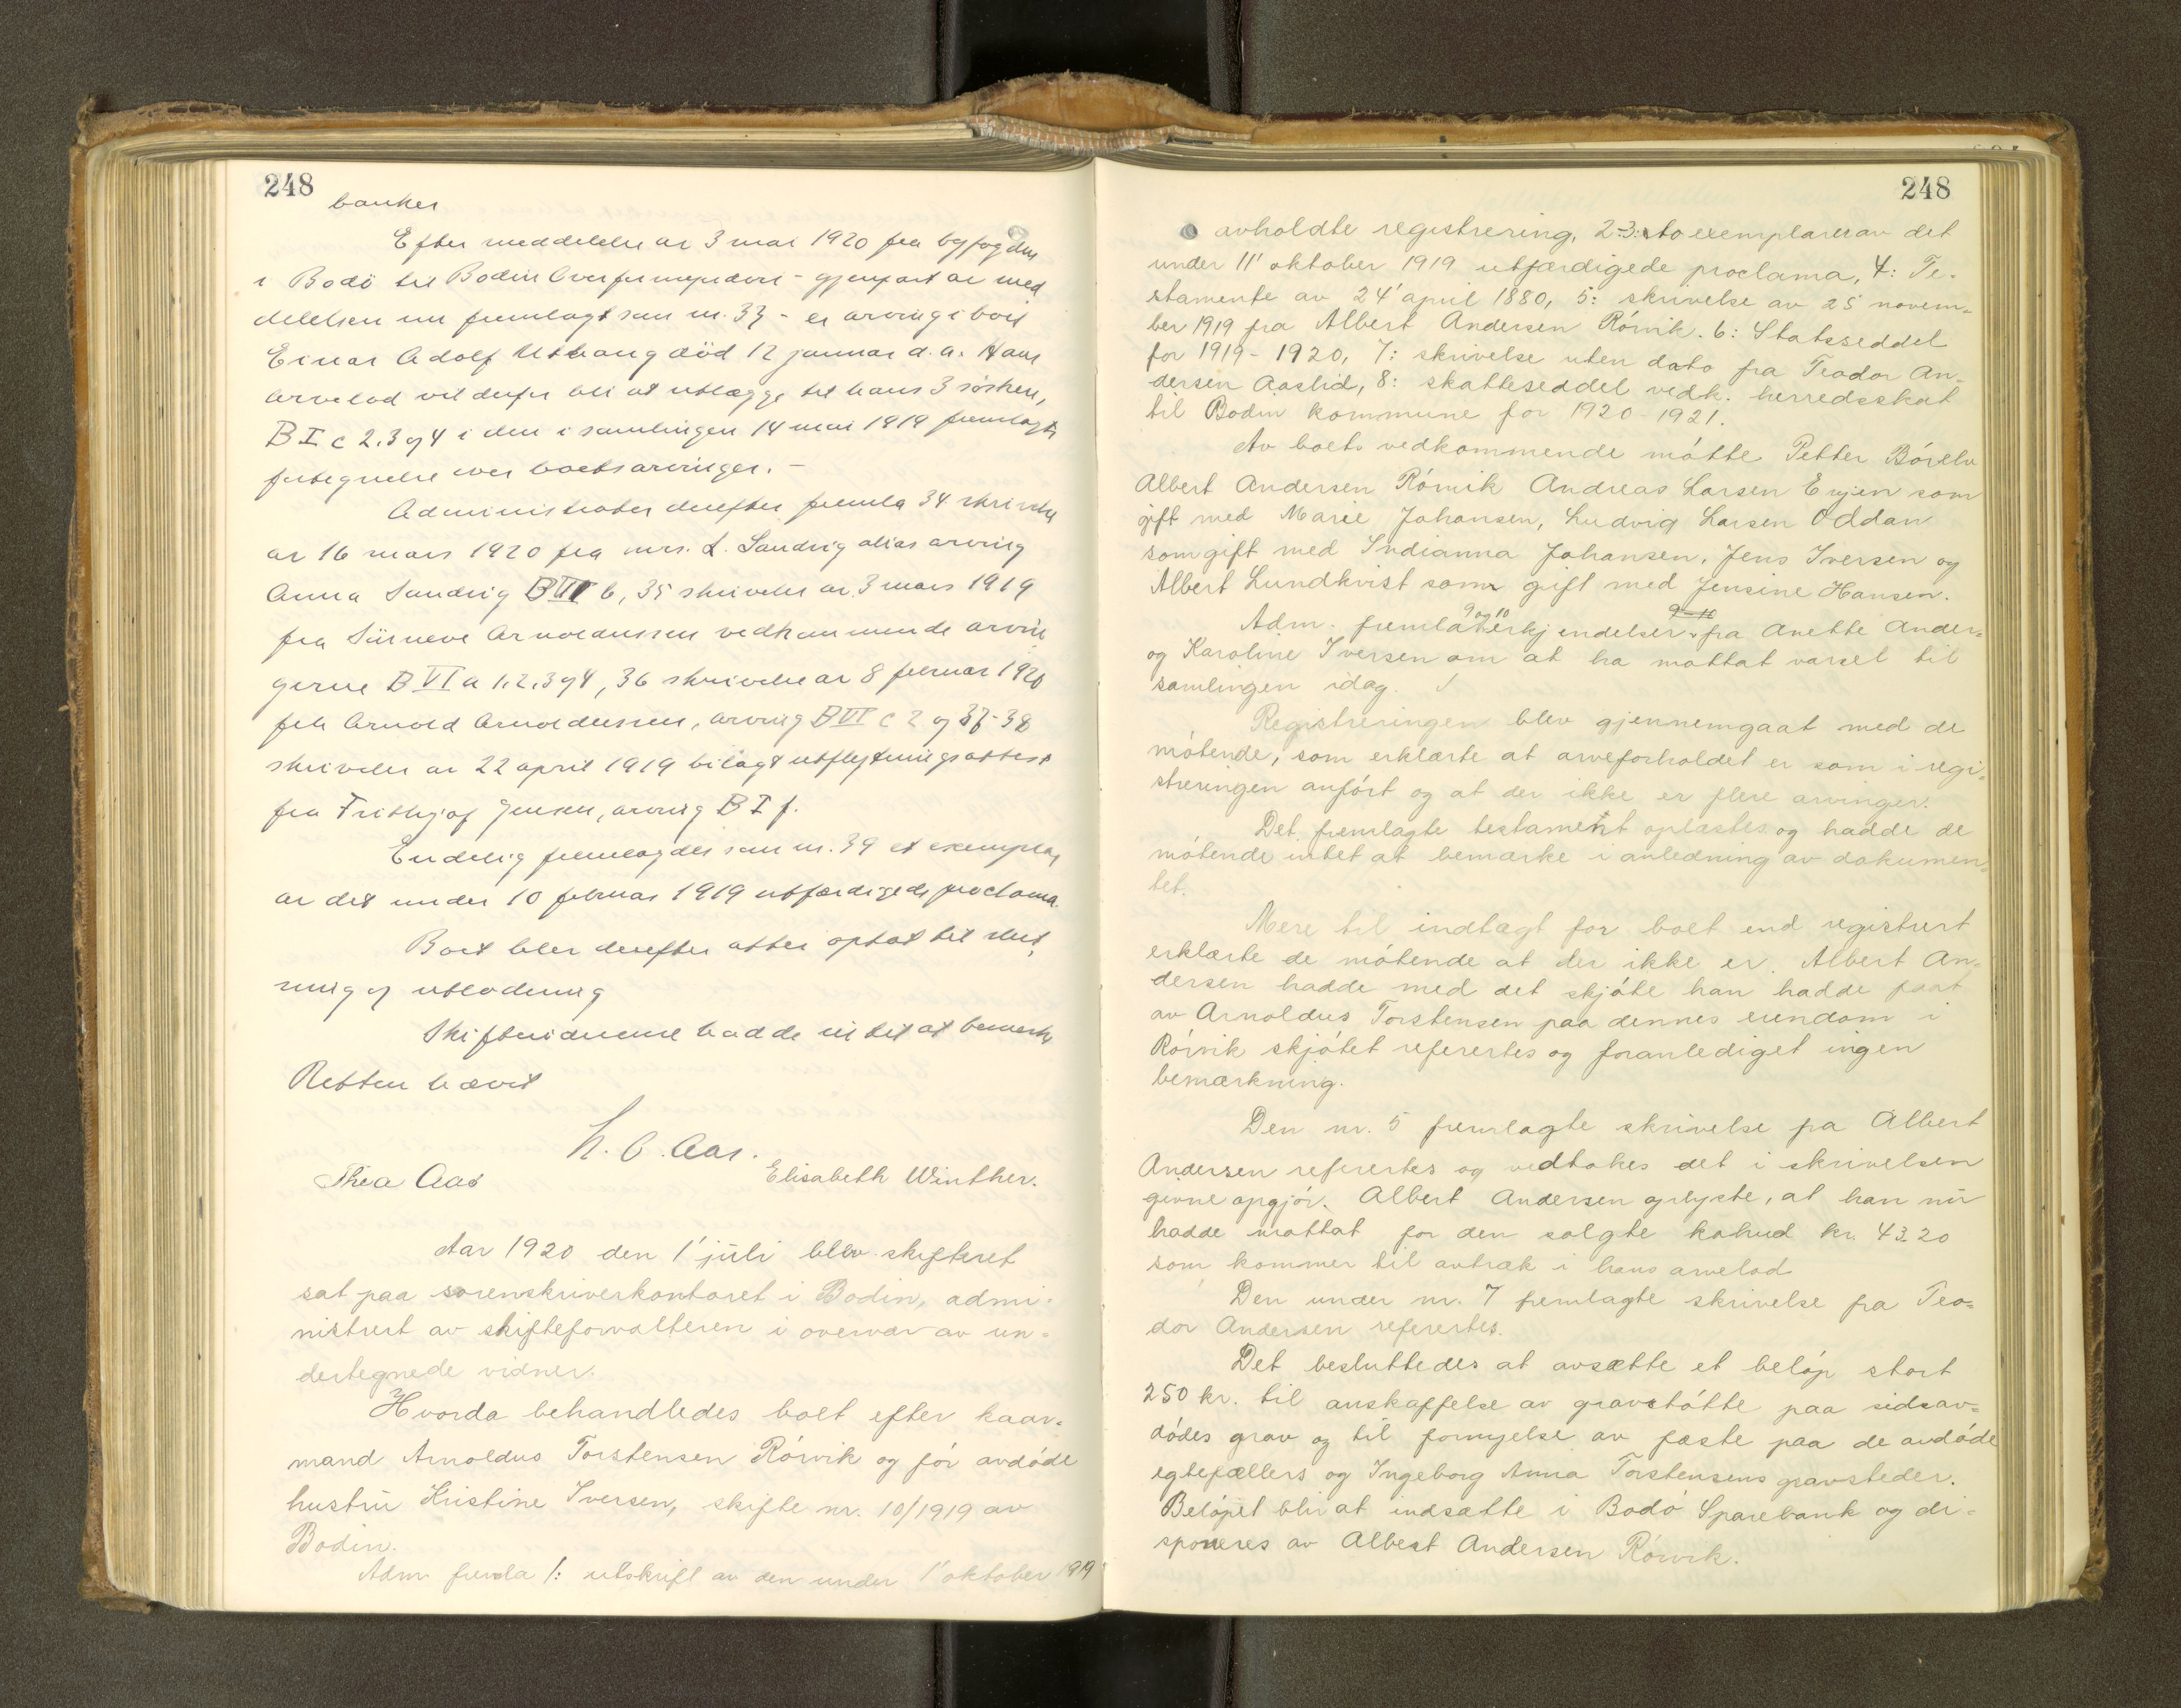 248
banker
Efter meddelelse av 3 mai 1920 fra byfogden
i Bodö til Bodin Overformynderi - gjenpart av med
delelsen nu fremlagt som nr. 33 - er arving i boet
Einar Adolf Uthaug död 12 januar d.a. Hans
arvelod vil derfor bli at utlægge til hans 3 søsken,
B I c 2.3 og 4 i den i samlingen 14 mai 1919 fremlagte
fortegnelse over boets arvinger. -
Administrator derefter fremla 34 skrivelse
av 16 mars 1920 fra mrs. L. Sandvig alias arving
Anna Sandvig B VII b, 35 skrivelse av 3 mars 1919
fra Arnoldussen vedkommende arvin
gerne B VI a 1.2.3 og 4, 36 skrivelse av 8 februar 1920
fra Arnold Arnoldussen, arving B VI c 2 og 37-38
skrivelse av 22 april 1919 bilagt utflytningsattest
fra Frithjof Jensen, arving B I f.
Endelig fremlagdes som nr. 39 et exemplar
av det under 10 februar 1919 utfærdigede proclama.
Boet blev derefter atter optat til slut,
ning og utlodning
Skiftevidnerne hadde intet at bemerke
Retten hævet
H. O. Aas.
Thea Aas Elisabeth Winther.
Aar 1920 den 1' júli blev skifteret
sat paa sorenskriverkontoret i Bodin, admi=
nistrert av skifteforvalteren i overvær av un=
dertegnede vidner.
Hvorda behandledes boet efter kaar=
mand Arnoldus Torstensen Rórvik og fór avdóde
hustrú Kristine Iversen, skifte nr. 10/1919 av
Bodin.
Adm fremla 1: utskrift av den under 1' oktober 1919
248
avholdte registrering, 2-3: to exemplarer av det
under 11' oktober 1919 utfærdigede proclama, 4: Te-
stamente av 24' april 1880, 5: skrivelse av 25 novem=
ber 1919 fra Albert Andersen Rórvik. 6: Statsseddel
for 1919-1920, 7: skrivelse uten dato fra Teodor An=
dersen Aaslid, 8: skatteseddel vedk. herredsskat
til Bodin kommune for 1920-1921.
Av boets vedkommende mótte Petter Bórelv
Albert Andersen Rórvik Andreas Larsen Engen som
gift med Marie Johansen, Ludvig Larsen Oddan
som gift med Indianna Johansen, Jens Iversen og
Albert Lundkvist som gift med Jensine Hansen.
9 og 10 9-10
Adm. fremla erkjendelser fra Anette Ander=
og Karoline Iversen om at ha mottat varsel til
samlingen idag.
Registreringen blev gjennemgaat med de
mótende, som erklærte at arveforholdet er som i regi=
streringen anfórt og at der ikke er flere arvinger.
Det fremlagte testament oplæstes og hadde de
mótende intet at bemærke i anledning av dokumen=
tet.
Mere til indtægt for boet end registrert
erklærte de mótende at der ikke er. Albert An=
dersen hadde med det skjóte han hadde faat
av Arnoldus Torstensen paa dennes eiendom i
Rórvik skjótet referertes og foranlediget ingen
bemærkning.
Den nr. 5 fremlagte skrivelse fra Albert
Andersen referertes og vedtokes det i skrivelsen
givne opgjór. Albert Andersen oplyste, at han nú
hadde mottat for den solgte kohud kr. 43.20
som kommer til avtræk i hans arvelod
Den under nr. 7 fremlagte skrivelse fra Teo=
dor Andersen referertes.
Det besluttedes at avsætte et belóp stort
250 kr. til anskaffelse av gravstótte paa sidsav=
dódes grav og til fornyelse av fæste paa de avdóde
egtefællers og Ingeborg Anna Torstensens gravsteder.
Belópet blir at indsætte i Bodó Sparebank og di=
sponeres av Albert Andersen Rórvik.